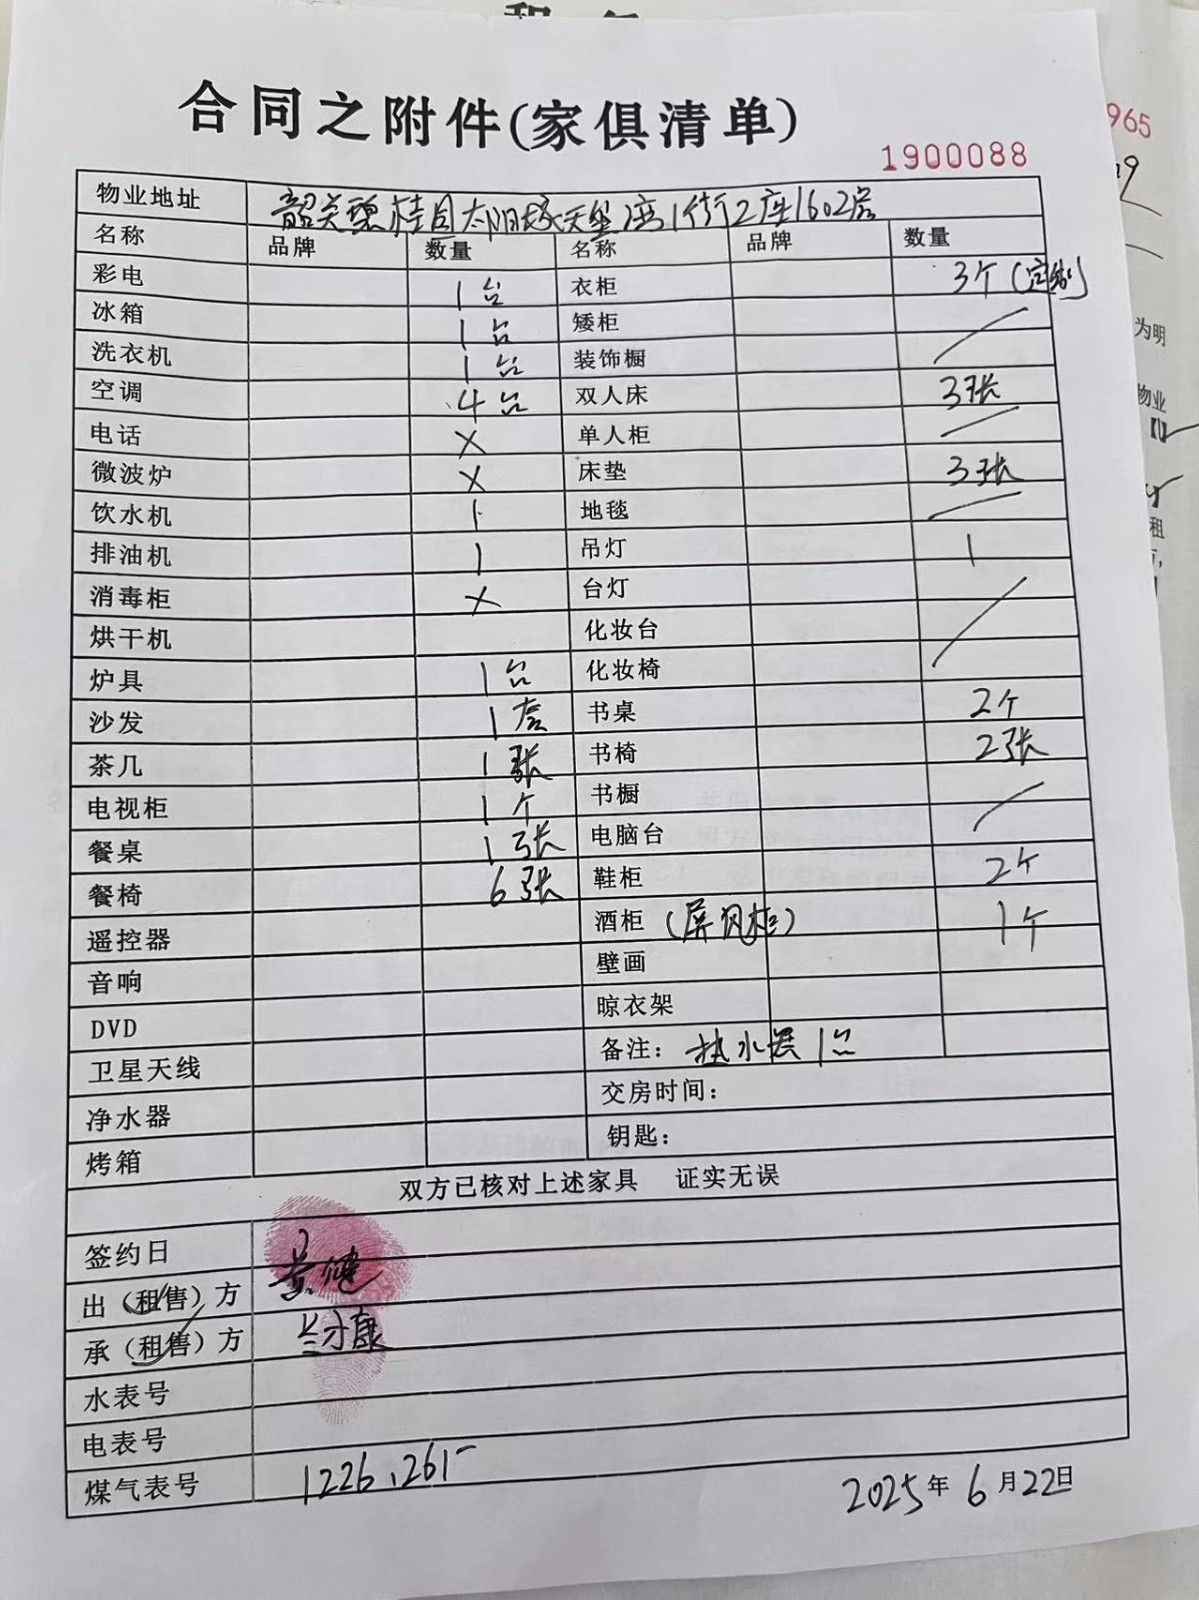 合同之附件(家俱清单)
1900088
965
物业地址 韶关碧桂园太阳城天玺湾1街2座1602房
名称 品牌 数量 名称 品牌 数量
彩电 1台 衣柜 3个(定制)
冰箱 1台 矮柜
洗衣机 1台 装饰橱
空调 4台 双人床 3张
电话 X 单人柜
微波炉 X 床垫 3张
饮水机 1 地毯
排油机 1 吊灯 1
消毒柜 X 台灯
烘干机 化妆台
炉具 1台 化妆椅
沙发 1套 书桌 2个
茶几 1张 书椅 2张
电视柜 1个 书橱
餐桌 1张 电脑台
餐椅 6张 鞋柜 2个
遥控器 酒柜 (屏风柜) 1个
音响 壁画
DVD 晾衣架
卫星天线 备注: 热水器1台
净水器 交房时间:
烤箱 钥匙:
双方已核对上述家具 证实无误
签约日
出(租售)方
承(租售)方
水表号
电表号
煤气表号 1226,261
2025年6月22日
为明
物业
租